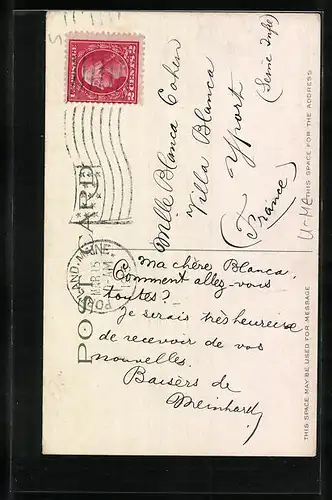 POST CARD
U.S. POSTAGE
2 CENTS 2
PORTLAND, MAINE
MAR 15
AM
Mlle Blanca Cohen
Villa Blanca
Yport
(Seine Infre)
(France)
U-ME
THIS SPACE FOR THE ADDRESS
Ma chère Blanca.
Comment allez-vous
toutes?
Je serais très heureuse
de recevoir de vos
nouvelles.
Baisers de
Meinhard
THIS SPACE MAY BE USED FOR MESSAGE